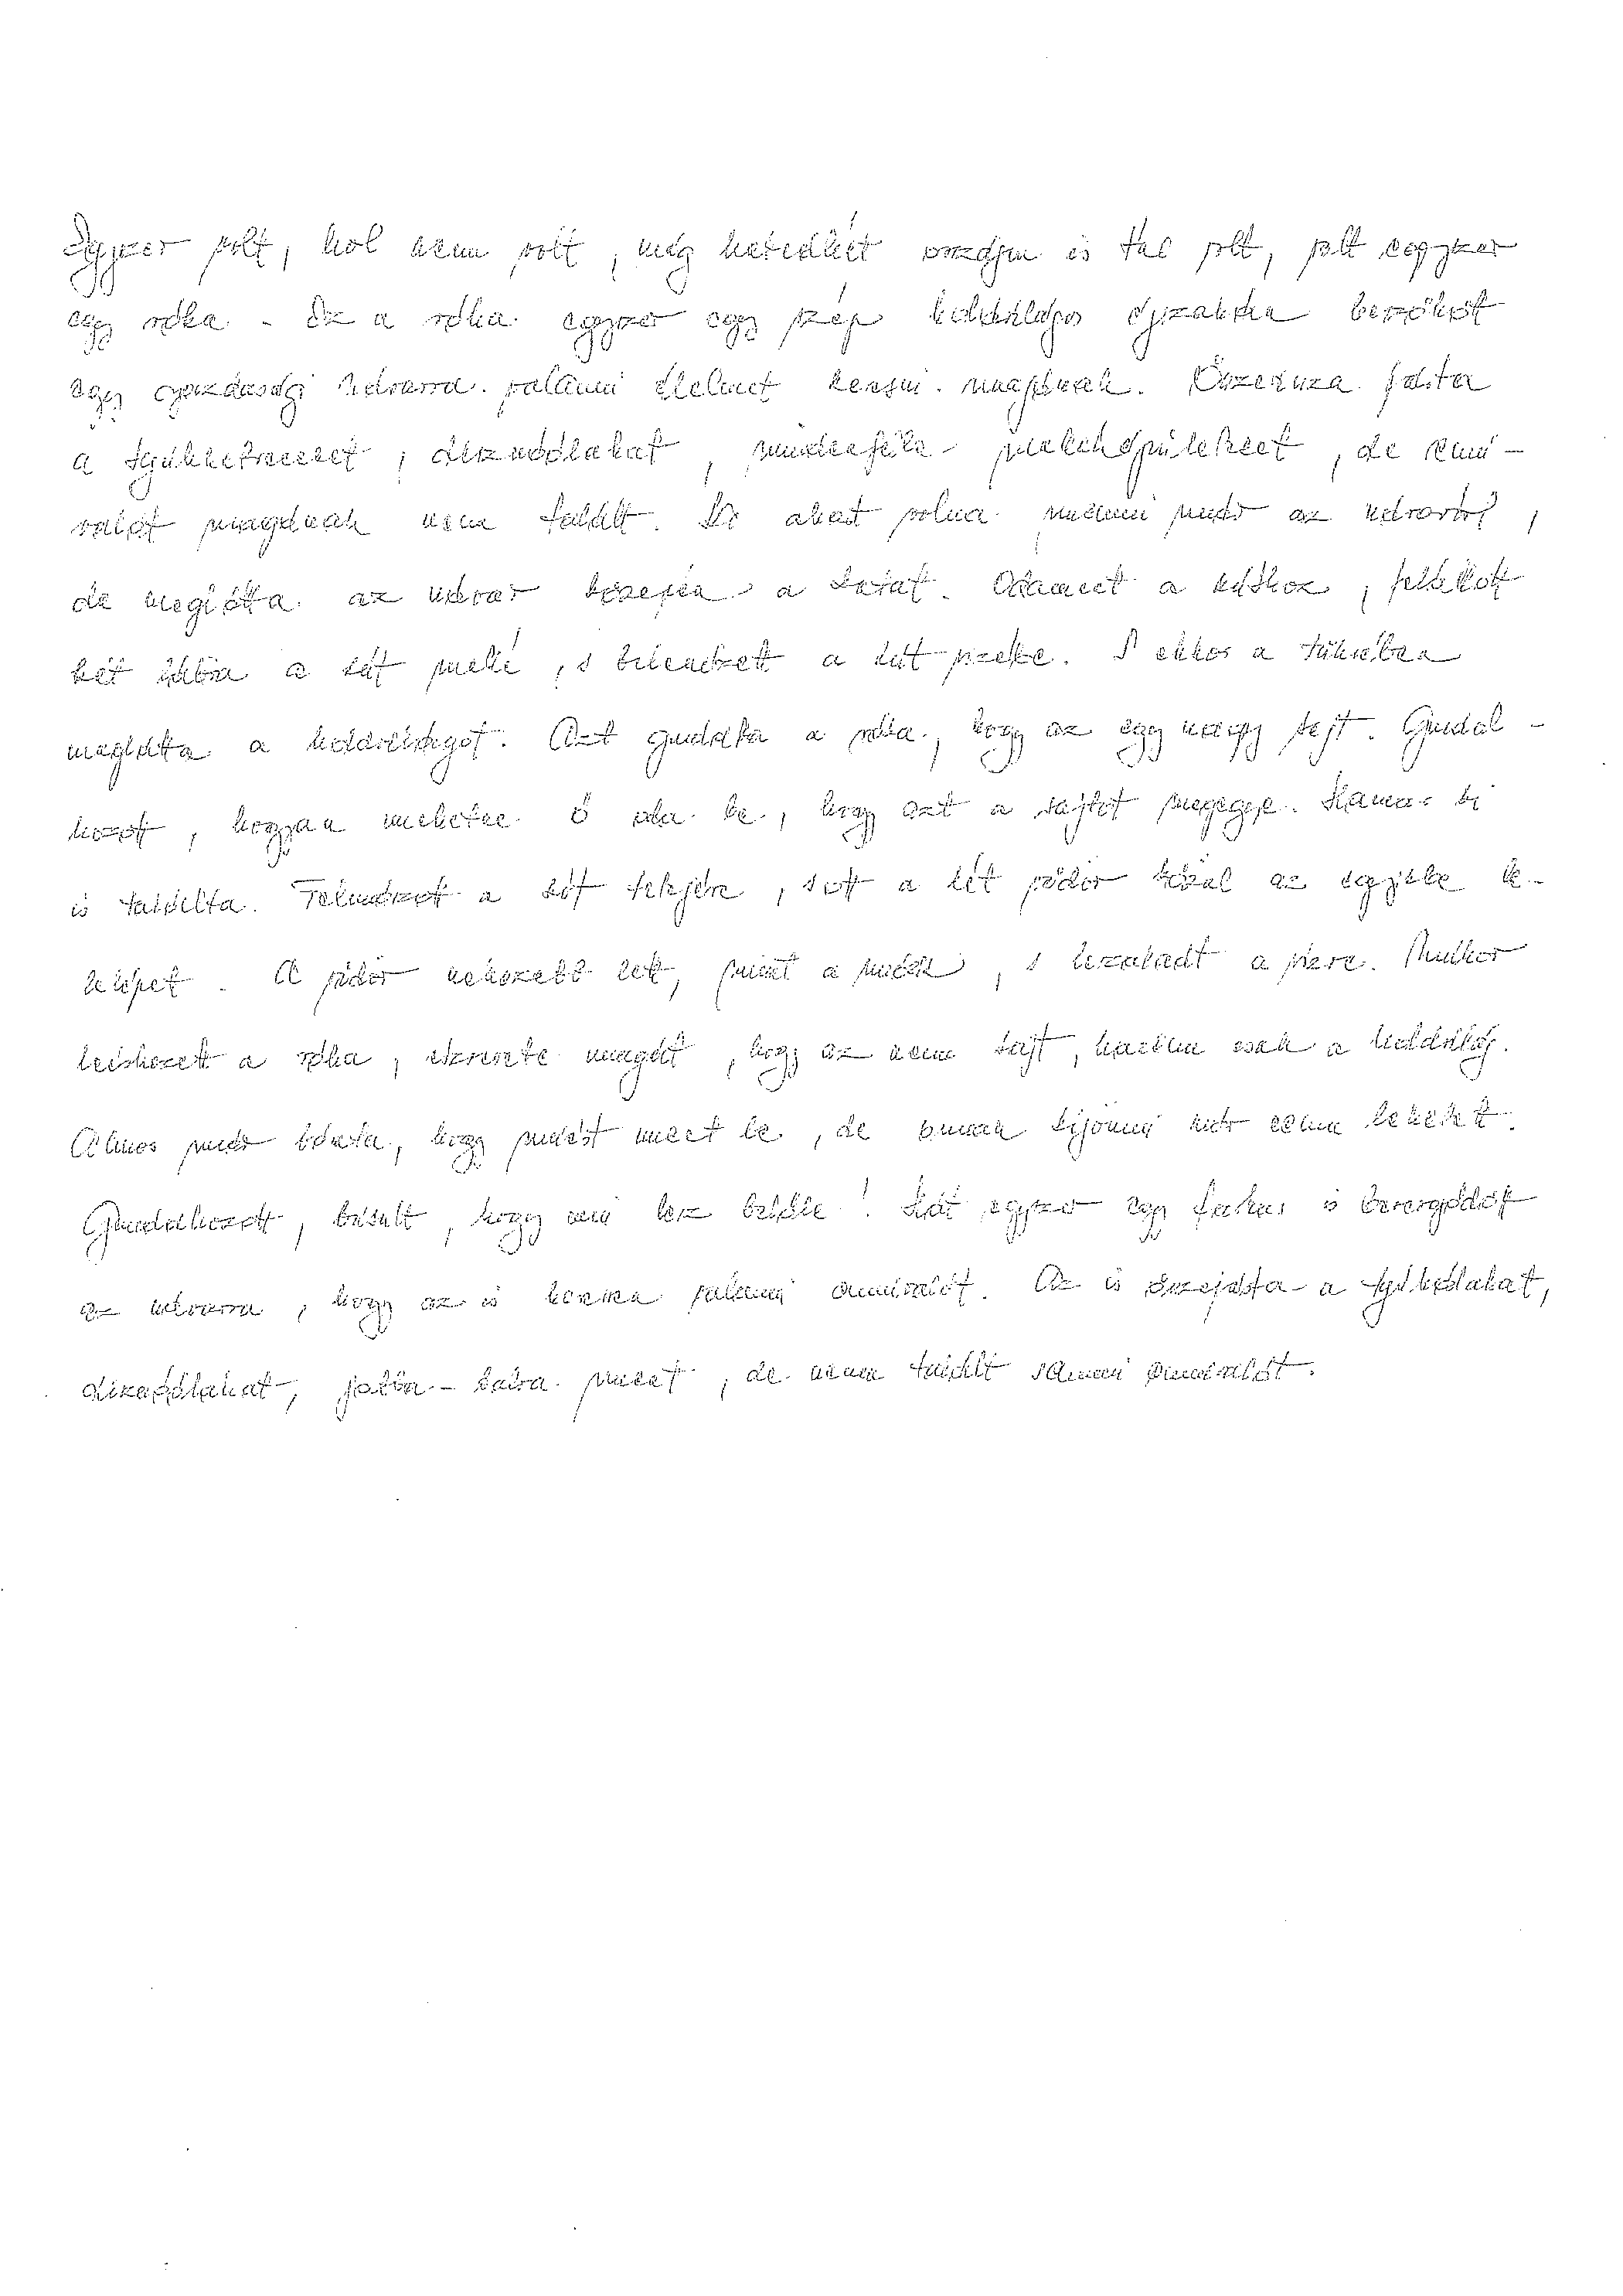 Egyszer volt, hol nem volt, még hetedhét országon is túl volt, volt egyszer
egy róka. Ez a róka egyszer egy szép holdvilágos éjszakán beszökött
egy gazdasági udvarra valami élelmet keresni magának. Összenuza járta
a tyúkketreceket, disznóólakat, mindenféle melléképületeket, de enni-
valót magának nem talált. Ki akart volna menni már az udvarból,
de meglátta az udvar közepén a kutat. Odament a kúthoz, felállott
két lábra a kút mellé, s belenézett a kút vizébe. S ekkor a tükörben
meglátta a holdvilágot. Azt gondolta a róka, hogy az egy nagy sajt. Gondol-
kozott, hogyan mehetne ő oda le, hogy azt a sajtot megegye. Hamar ki
is találta. Felmászott a kút tetejére, s ott a két vödör közül az egyikbe be-
lelépett. A vödör nehezebb lett, mint a másik, s leszaladt a vízre. Mikor
leérkezett a róka, észrevette magát, hogy az nem sajt, hanem csak a holdvilág.
Ahhoz már bánta, hogy miért ment le, de onnan kijönni már nem lehetett.
Gondolkozott, búsult, hogy mi lesz belőle! Hát egyszer egy farkas is bevergődött
az udvarra, hogy az is keressen valami ennivalót. Az is összejárta a tyúkólakat,
disznóólakat, jobbra-balra ment, de nem talált semmi ennivalót.